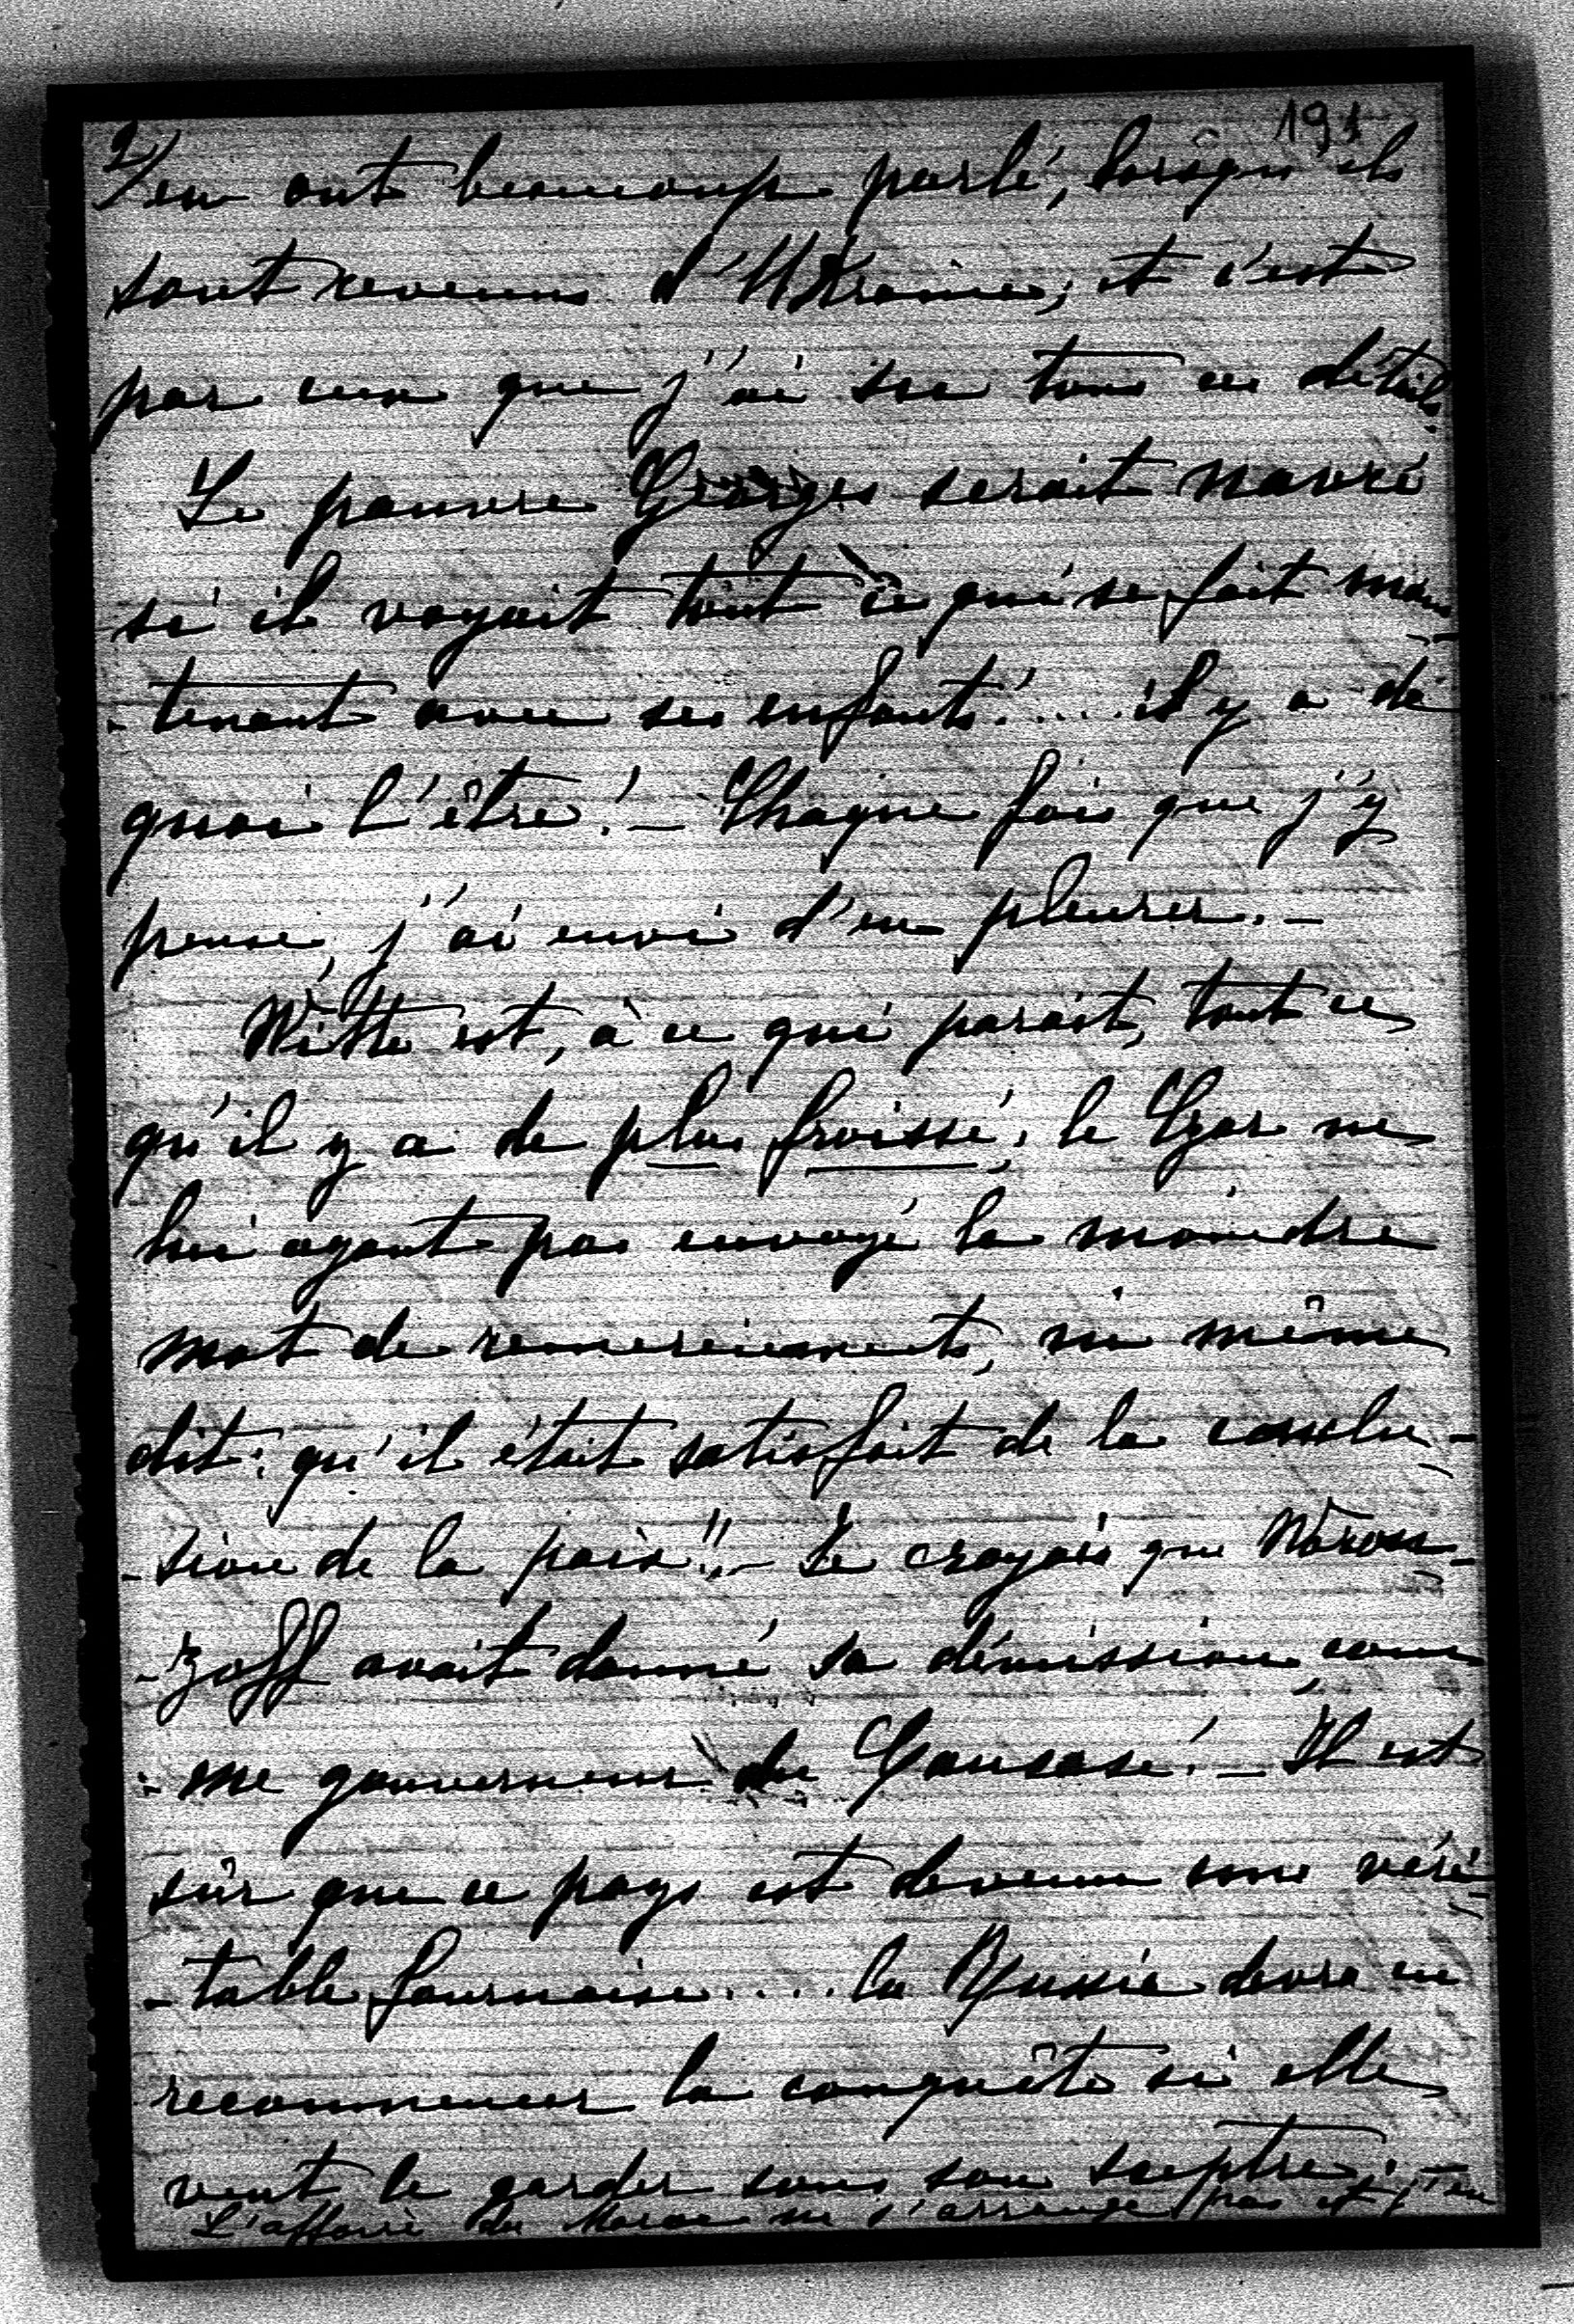 2/ 191
en ont beaucoup parlé, lorsqu'ils
sont revenus d'Ukraine, et c'est
par eux que j'ai su tous ces détails.
Le pauvre Georges serait navré
si il voyait tout ce qui se fait main-
-tenant avec ses enfants!.... il y a de
quoi l'être! — Chaque fois que j'y
pense, j'ai envie d'en pleurer. —
Witte est, à ce qui parait, tout ce
qu'il y a de plus froissé, le Czar ne
lui ayant pas envoyé le moindre
mot de remerciements, ni même
dit: qu'il était satisfait de la conclu-
-sion de la paix!! — Je croyais que Woron-
-zoff avait donné sa démission, com-
-me gouverneur du Caucase! — Il est
sûr que ce pays est devenu une véri-
-table fournaise.... la Russie devra en
recommencer la conquête si elle
veut le garder sous son sceptre. —
L'affaire du Maroc ne s'arrange pas et j'en